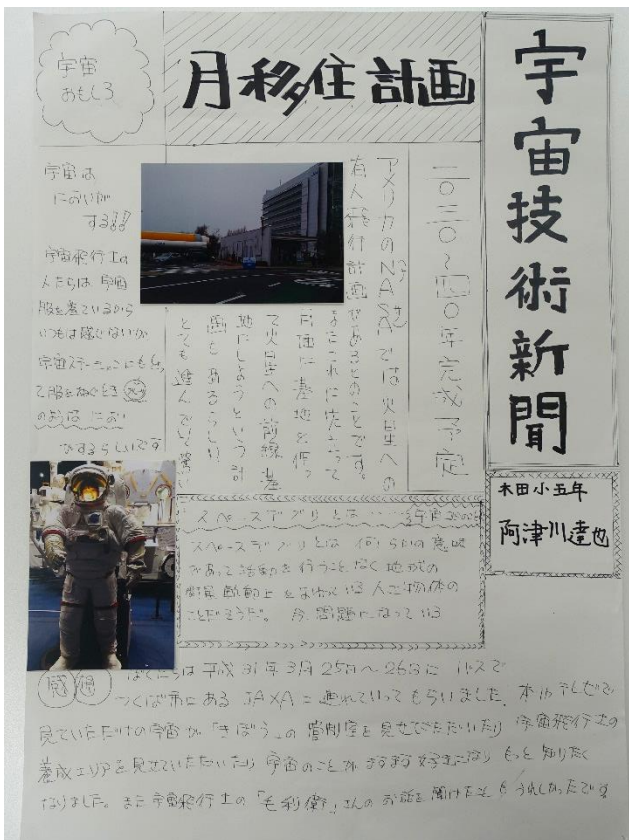 宇宙技術新聞
木田小五年
阿津川達也
月移住計画
二〇三〇〜四〇年完成予定
アメリカのNASAでは火星への
有人飛行計画があるとのことです。
またこれに先立って
月面に基地を作っ
て火星への前線基
地にしようという計
画もあるらしい。
とても進んでいて驚い
宇宙
おもしろ
宇宙は
においが
する!!
宇宙飛行士の
人たちは宇宙
服を着ているから
いつもは感じないが
宇宙ステーションにもどっ
て服をぬぐとき
のような におい
がするらしいです
スペースデブリとは
スペースデブリとは 何らかの意味
がある活動を行うことなく地球の
衛星軌道上をまわっている人工物体の
ことだそうだ。 今、問題になっている
感想
ぼくたちは平成31年3月25日〜26日に バスで
つくば市にある JAXAに連れていってもらいました。本やテレビで
見ていただけの宇宙が「きぼう」の管制室を見せていただいたり 宇宙飛行士の
養成エリアを見せていただいたり 宇宙のことがますます好きになり もっと知りたく
なりました。また宇宙飛行士の「毛利衛」さんのお話を聞けたことも うれしかったです